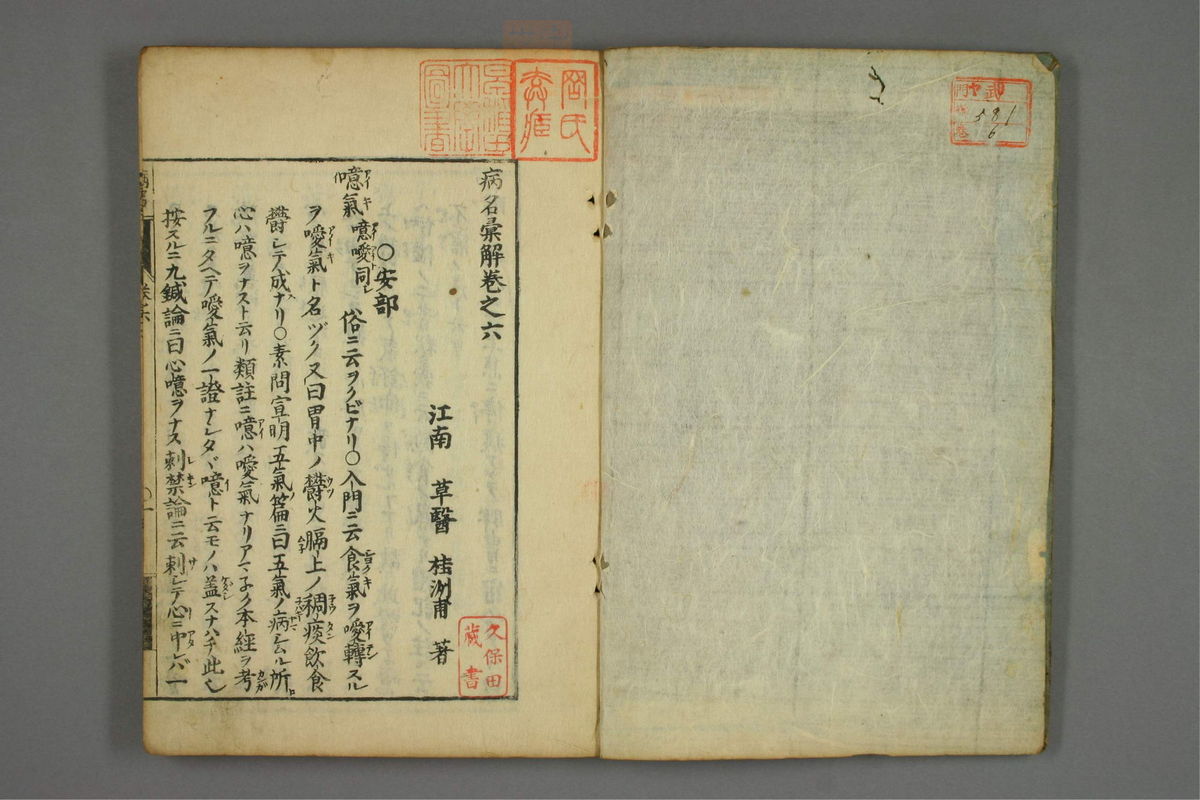 病名彙解巻之六
江南 草醫 桂洲甫 著
○安部
噫氣 噫噯同シ 俗ニ云ヲクビナリ○入門ニ云食氣ヲ噯轉スル
ヲ噯氣ト名ヅク又曰胃中ノ欝火膈上ノ稠痰飲食
欝シテ成ナリ○素問宣明五氣篇ニ曰五氣ノ病シムル所
心ハ噫ヲナスト云リ類註ニ噫ハ噯氣ナリアマネク本經ヲ考
フルニタヘテ噯氣ノ一證ナシタヾ噫ト云モノハ盖スナハチ此也
按スルニ九鍼論ニ曰心噫ヲナス刺禁論ニ云刺シテ心ニ中レバ一
久保田
藏書
581
6